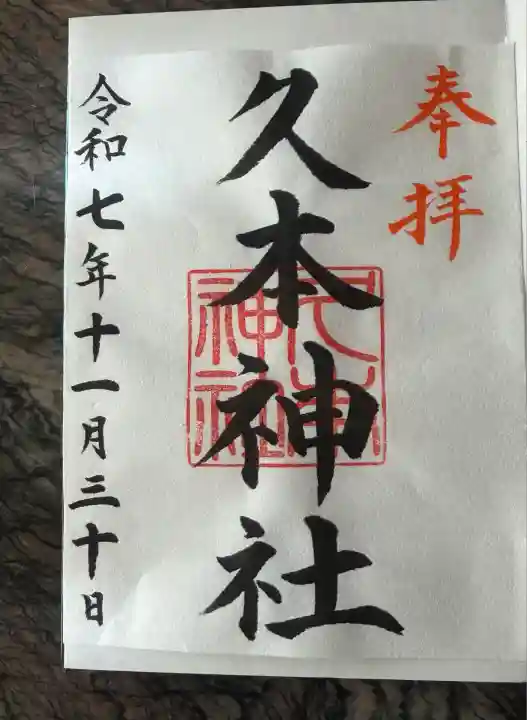 奉拝
久本神社
久本
神社
令和七年十一月三十日